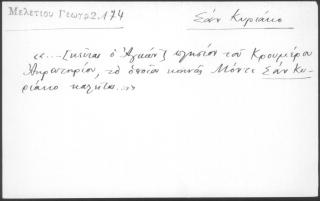 Μελετίου Γεωγρ 2.174
Σάν Κυριάκο
«...[κεῖται ὁ Ἀγκών] πλησίον τοῦ Κρουμέρου
Ἀκρωτηρίου, τὸ ὁποῖον κοινῶς Μόντε Σάν Κυ-
ριάκο καλεῖται..»